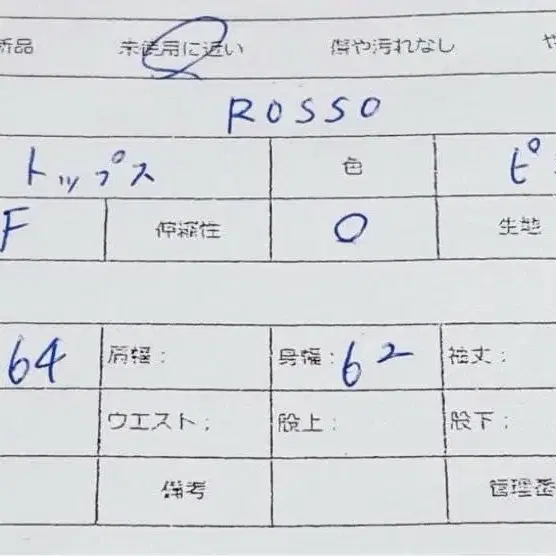 新品 未使用に近い 傷や汚れなし や
ROSSO
トップス 色 ピ
F 伸縮性 O 生地
64 肩幅: 身幅:62 袖丈:
ウエスト: 股上: 股下:
備考 管理番